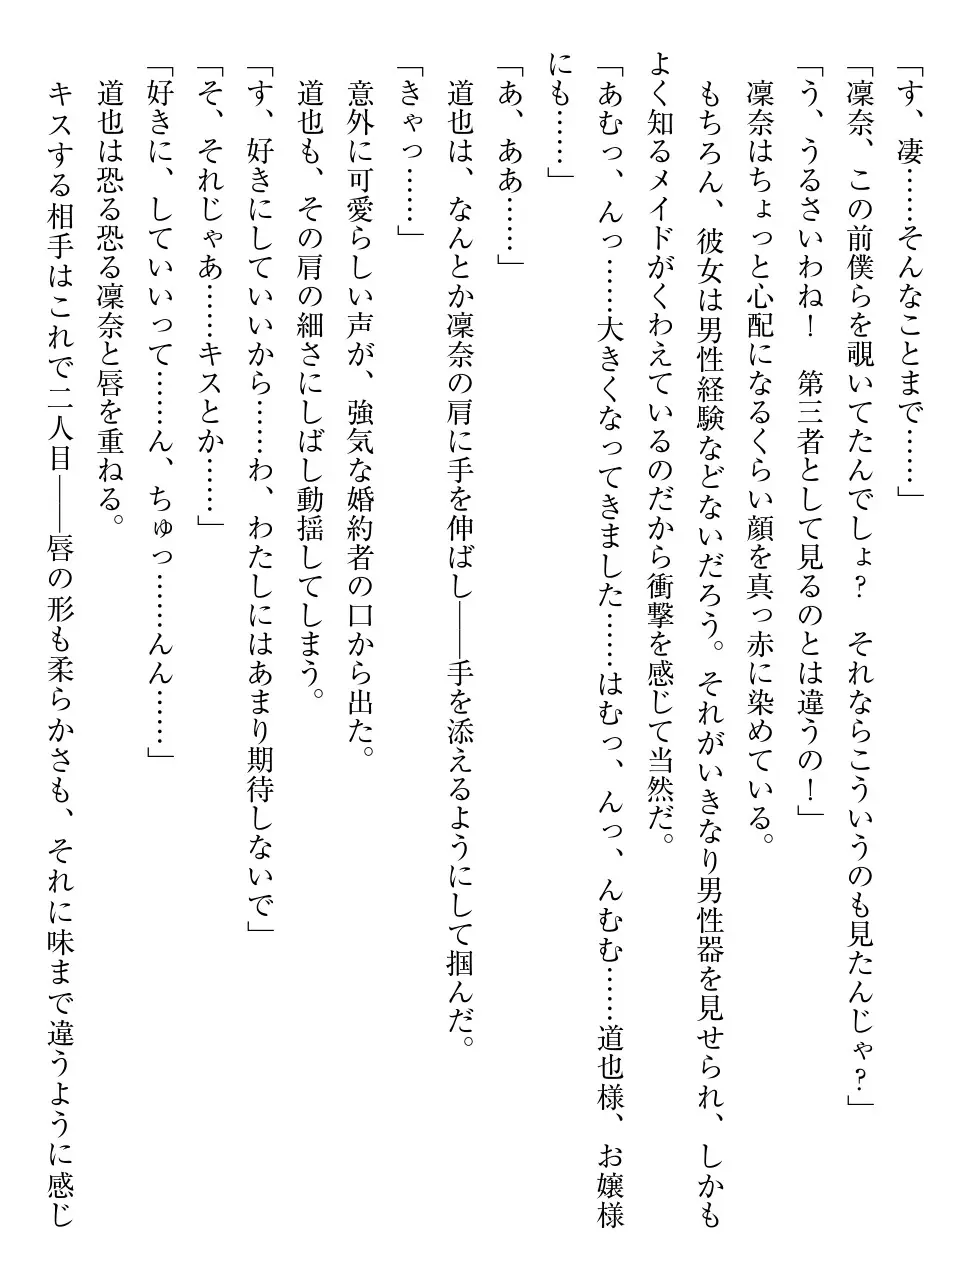 「す、凄……そんなことまで……」
「凜奈、この前僕らを覗いてたんでしょ？　それならこういうのも見たんじゃ？」
「う、うるさいわね！　第三者として見るのとは違うの！」
凜奈はちょっと心配になるくらい顔を真っ赤に染めている。
もちろん、彼女は男性経験などないだろう。それがいきなり男性器を見せられ、しかも
よく知るメイドがくわえているのだから衝撃を感じて当然だ。
「あむっ、んっ……大きくなってきました……はむっ、んっ、んむむ……道也様、お嬢様
にも……」
「あ、ああ……」
道也は、なんとか凜奈の肩に手を伸ばし――手を添えるようにして掴んだ。
「きゃっ……」
意外に可愛らしい声が、強気な婚約者の口から出た。
道也も、その肩の細さにしばし動揺してしまう。
「す、好きにしていいから……わ、わたしにはあまり期待しないで」
「そ、それじゃあ……キスとか……」
「好きに、していいって……ん、ちゅっ……んん……」
道也は恐る恐る凜奈と唇を重ねる。
キスする相手はこれで二人目――唇の形も柔らかさも、それに味まで違うように感じ